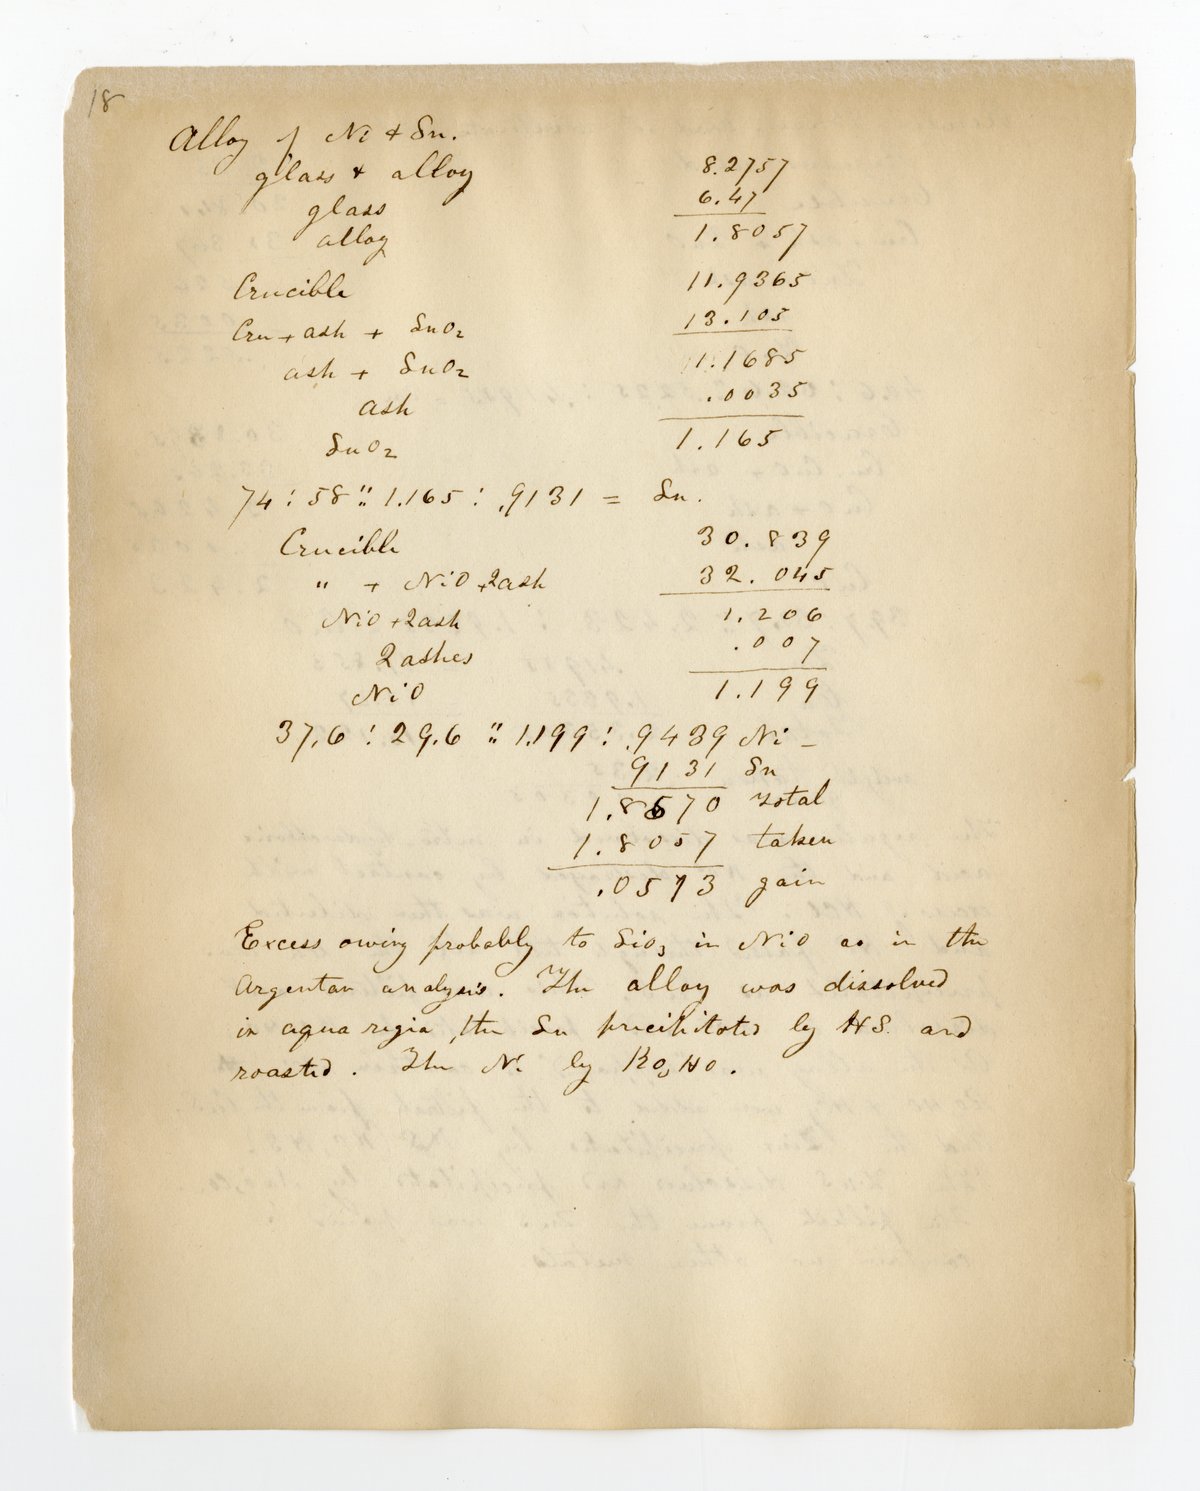 18
Alloy of Ni + Sn.
glass + alloy 8.2757
glass 6.47
alloy 1.8057
Crucible 11.9365
Cru + ash + SnO2 13.105
ash + SnO2 1.1685
ash .0035
SnO2 1.165
74 : 58 :: 1.165 : .9131 = Sn.
Crucible 30.839
" + NiO + 2ash 32.045
NiO + 2ash 1.206
2ashes .007
NiO 1.199
37.6 : 29.6 :: 1.199 : .9439 Ni –
9131 Sn
1.8570 total
1.8057 taken
.0513 gain
Excess owing probably to SiO3 in NiO as in the
Argentan analysis. The alloy was dissolved
in aqua regia, the Sn precipitated by HS. and
roasted. The Ni by KO,HO.